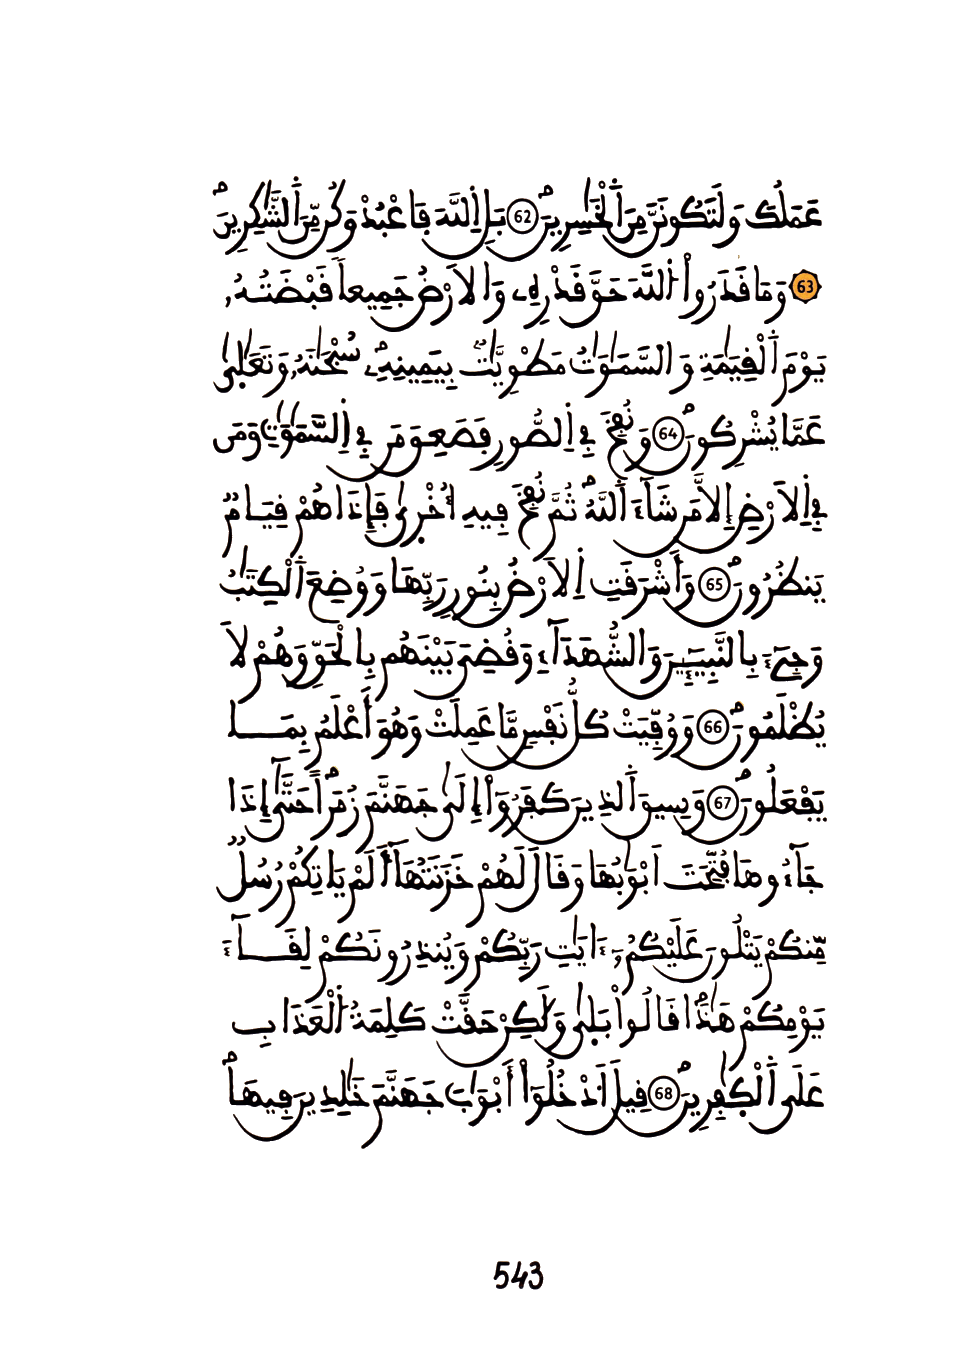 عَمَلُكَ وَلَتَكُونَنَّ مِنَ اَ۬لْخَٰسِرِينَۖ 62 بَلِ اِ۬للَّهَ فَاعْبُدْ وَكُن مِّنَ اَ۬لشَّٰكِرِينَۖ
63 وَمَا قَدَرُواْ اُ۬للَّهَ حَقَّ قَدْرِهِۦ وَالَارْضُ جَمِيعاٗ قَبْضَتُهُۥ
يَوْمَ اَ۬لْقِيَٰمَةِ وَالسَّمَٰوَٰتُ مَطْوِيَّٰتُۢ بِيَمِينِهِۦۖ سُبْحَٰنَهُۥ وَتَعَٰل۪يٰ
عَمَّا يُشْرِكُونَۖ 64 وَنُفِخَ فِے اِ۬لصُّورِ فَصَعِقَ مَن فِے اِ۬لسَّمَٰوَٰتِ وَمَن
فِے اِ۬لَارْضِ إِلَّا مَن شَآءَ اَ۬للَّهُۖ ثُمَّ نُفِخَ فِيهِ أُخْر۪يٰ فَإِذَا هُمْ قِيَامٞ
يَنظُرُونَۖ 65 وَأَشْرَقَتِ اِ۬لَارْضُ بِنُورِ رَبِّهَا وَوُضِعَ اَ۬لْكِتَٰبُ
وَجِےٓءَ بِالنَّبِيٓـِٕينَ وَالشُّهَدَآءِ وَقُضِيَ بَيْنَهُم بِالْحَقِّ وَهُمْ لَا
يُظْلَمُونَۖ 66 وَوُفِّيَتْ كُلُّ نَفْسٖ مَّا عَمِلَتْ وَهُوَ أَعْلَمُ بِمَا
يَفْعَلُونَۖ 67 وَسِيقَ اَ۬لذِينَ كَفَرُوٓاْ إِلَىٰ جَهَنَّمَ زُمَراًۖ حَتَّىٰٓ إِذَا
جَآءُوهَا فُتِّحَتَ اَبْوَٰبُهَا وَقَالَ لَهُمْ خَزَنَتُهَآ أَلَمْ يَاتِكُمْ رُسُلٞ
مِّنكُمْ يَتْلُونَ عَلَيْكُمُۥٓ ءَايَٰتِ رَبِّكُمْ وَيُنذِرُونَكُمْ لِقَآءَ
يَوْمِكُمْ هَٰذَاۖ قَالُواْ بَل۪يٰ وَلَٰكِنْ حَقَّتْ كَلِمَةُ اُ۬لْعَذَابِ
عَلَى اَ۬لْكٰ۪فِرِينَۖ 68 قِيلَ اَ۟دْخُلُوٓاْ أَبْوَٰبَ جَهَنَّمَ خَٰلِدِينَ فِيهَاۖ
543